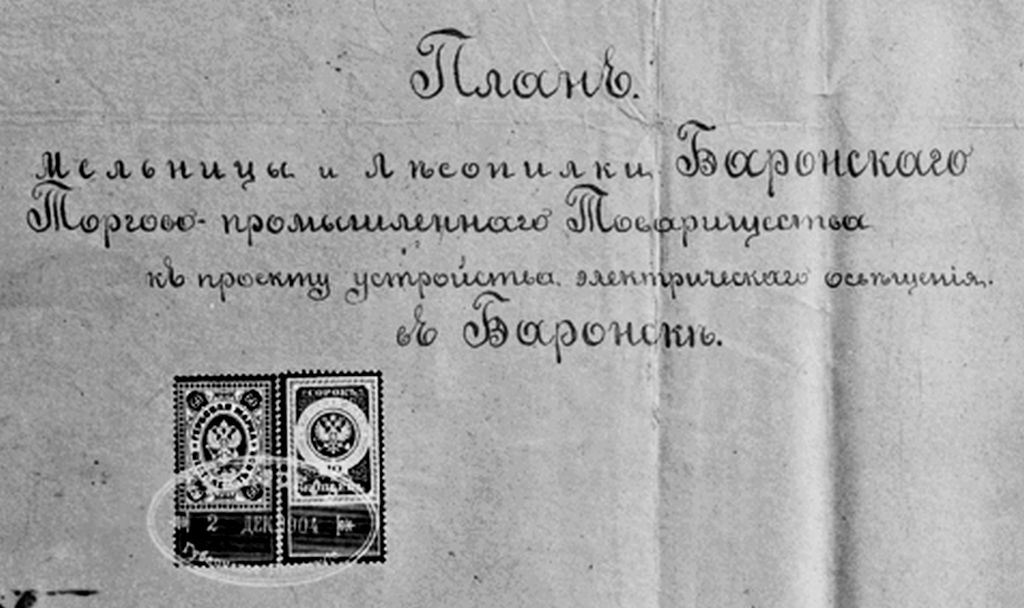 Планъ.
Мельницы и Лѣсопилки Баронскаго
Торгово-промышленнаго Товарищества
къ проекту устройства электрическаго освѣщенія.
въ Баронскѣ.
ГЕРБОВАЯ МАРКА
60 60
СОРОКЪ
КОПѢЕКЪ
2 ДЕК 904